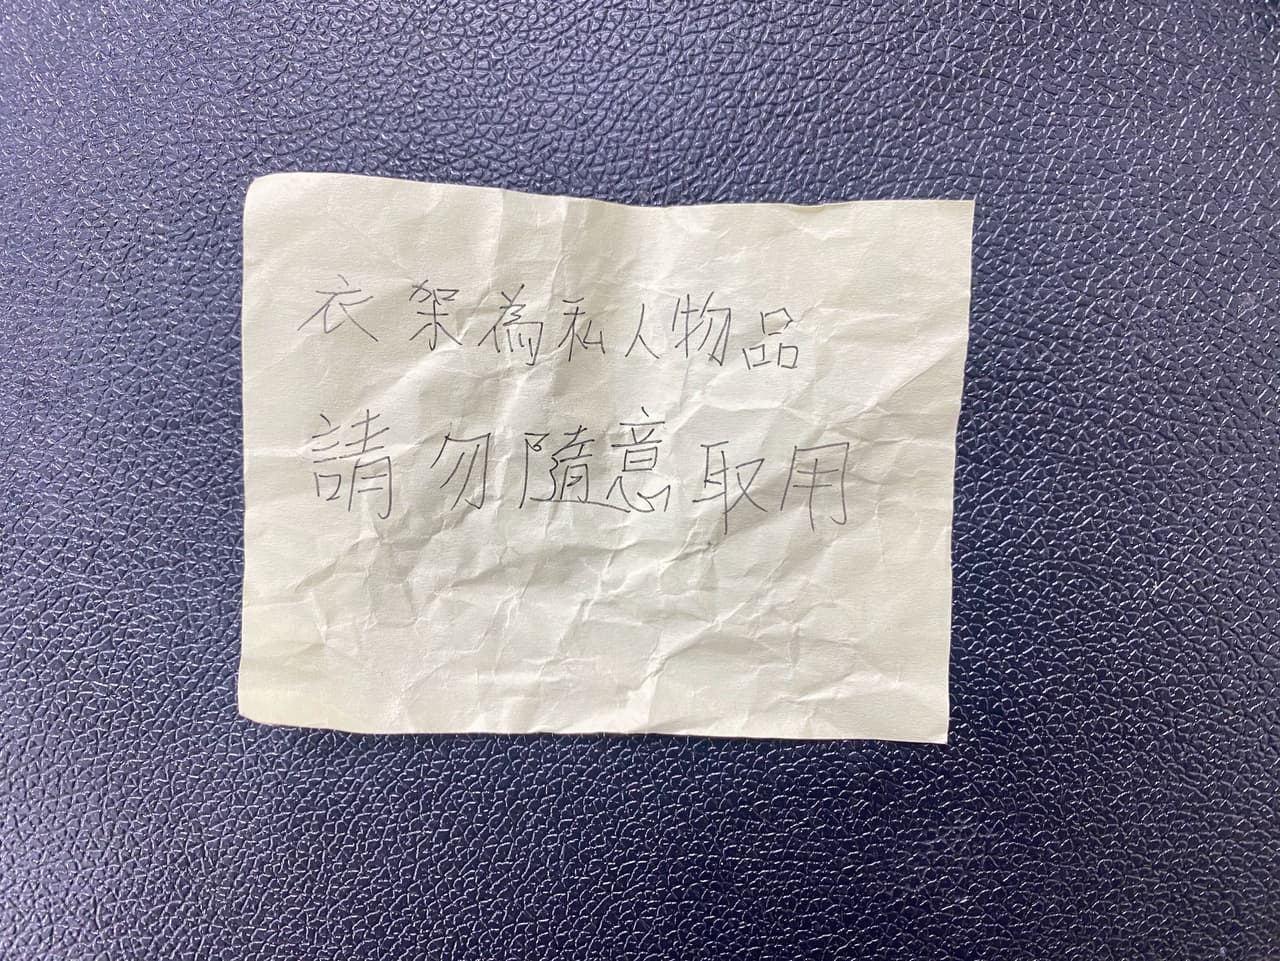 衣架為私人物品
請勿隨意取用